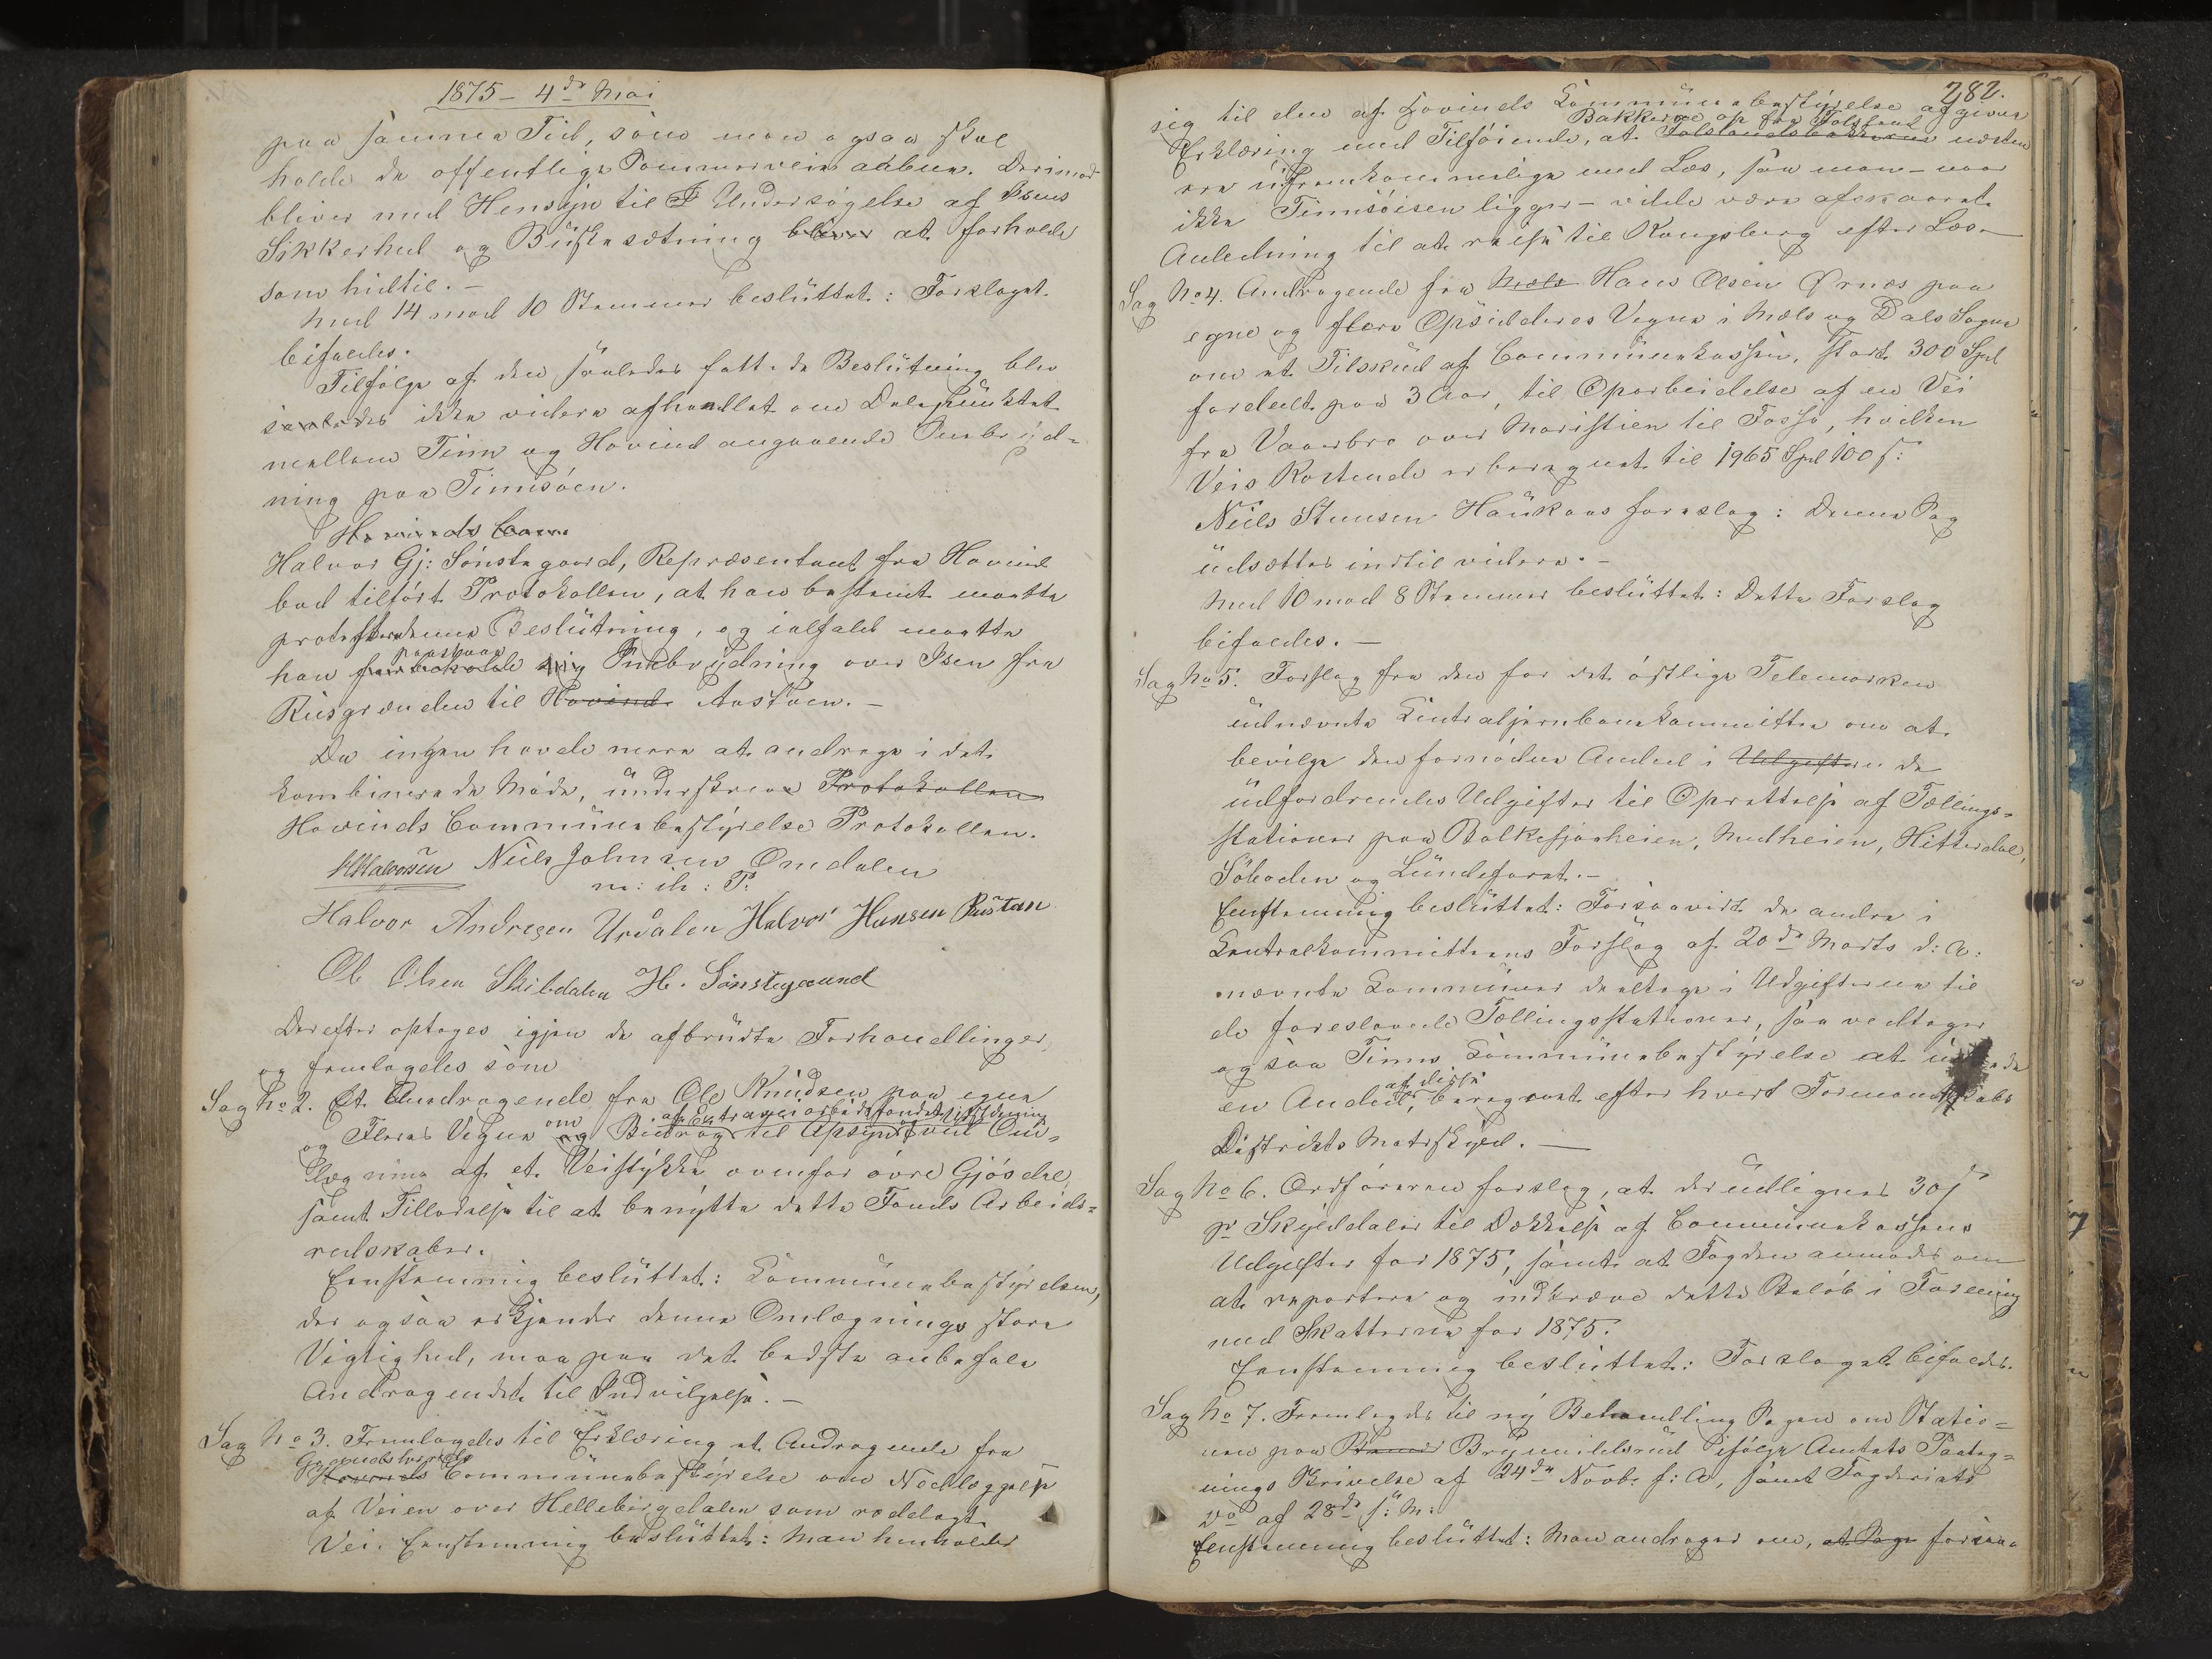 1875 – 4de Mai
paa samme Tid, som man ogsaa skal
holde de offentlige Sommerveie aabne. Derimod
bliver med Hensyn til I Undersøgelse af Isens
Sikkerhed og Buskesætning bliver at forholde
som hidtil. –
Med 14 mod 10 Stemmer besluttet: Forslaget
bifaldes.
Tilfølge af den saaledes fattede Beslutning blev
saaledes ikke videre afhandlet om Delepunktet
mellem Tinn og Hovind angaaende Ombryd=
ning paa Tinnsøen.
Hovinds Com
Halvor Gj: Sønstegaard, Repræsentant fra Hovind
bad tilført Protokollen, at han bestemt maatte
protestere denne Beslutning, og ialfald maatte
paastaa
han forbeholde sig Ombrydning over Isen fra
Riisgrænden til Hovind Aastøen. –
Da ingen havde mere at andrage i det
kombinerede Møde, underskrev Protokollen
Hovinds Communebestyrelse Protokollen.
HHalvorsen Niels Johnsen Omdalen
m: ih: P:
Halvor Andresen Urdalen Halvor Hansen Rustan
Ole Olsen Skibdalen H. Sønstegaard
Derefter optoges igjen de afbrudte Forhandlinger,
og fremlagdes som
Sag No 2. Et Andragende fra Ole Knudsen paa egne
om af Entraveiarbeidsfondet Veiledning
og Fleres Vegne og Bidrag til Opsyn og ved Om=
lægning af et Veistykke ovenfor øvre Gjøsdal,
samt Tilladelse til at benytte dette Fonds Arbeids=
redskaber.
Eenstemmig besluttet: Communebestyrelsen,
der ogsaa erkjender denne Omlægnings store
Vigtighed, maa paa det bedste anbefale
Andragendet til Indvilgelse. –
Sag No 3. Fremlagdes til Erklæring et Andragende fra
Grandsherreds
Hovinds Communebestyrelse om Nedlæggelse
af Veien over Hellebergdalen som rodelagt
Vei. Eenstemmig besluttet: Man henholder
282.
sig til den af Hovinds Communebestyrelse afgivne
Bakkerne op fra Følsland
Erklæring med Tilføiende, at Følslandsbakkerne næsten
ere ufremkommelige med Læs, saa man – naar
ikke Tinnsøisen ligger – vilde være afskaaret
Anledning til at reise til Kongsberg efter Læs. –
Sag No 4. Andragende fra Mæls Hans Olsen Ørnes paa
egne og flere Opsidderes Vegne i Mæls og Dals Sogne
om et Tilskud af Communekassen, stort 300 Spd
fordeelt paa 3 Aar, til Oparbeidelse af en Vei
fra Vaaerbro over Maristien til Fosso, hvilken
Veis Kostende er beregnet til 1965 Spd 100 s:
Niels Steensen Haukaas foreslog: Denne Sag
udsættes indtil videre. –
Med 10 mod 8 Stemmer besluttet: Dette Forslag
bifaldes. –
Sag No 5. Forslag fra den for det østlige Telemarken
udnævnte Centraljernbanekommitte om at
bevilge den fornødne Andeel i Udgiften de
udfordrendes Udgifter til Oprettelse af Tællings=
stationer paa Bolkesjøheien, Medheien, Hitterdal,
Søboden og Lundefaret. –
Eenstemmig besluttet: Forsaavidt de andre i
Centralkommitteens Forslag af 20de Marts d: A:
nævnte Communer deeltage i Udgifterne til
de foreslaaede Tællingsstationer, saa vedtager
ogsaa Tinns Communebestyrelse at
af disse
en Andeel, beregnet efter hvert Formandskabs
Distrikts Matrskyld. –
Sag No 6. Ordføreren forslog, at der udlignes 30 s
pr Skylddaler til Dækkelse af Communekassens
Udgifter for 1875, samt at Fogden anmodes om
at repartere og indkræve dette Beløb i Forening
med Skatterne for 1875.
Eenstemmig besluttet: Forslaget bifaldes.
Sag No 7. Fremlagdes til ny Behandling Sagen om Statio=
nen paa Brynildsrud ifølge Amtets Paateg=
nings Skrivelse af 24de Novb: f: A, samt Fogderiets
do af 28de s: M:
Eenstemmig besluttet: Man andrager om, at Sage forsaa=